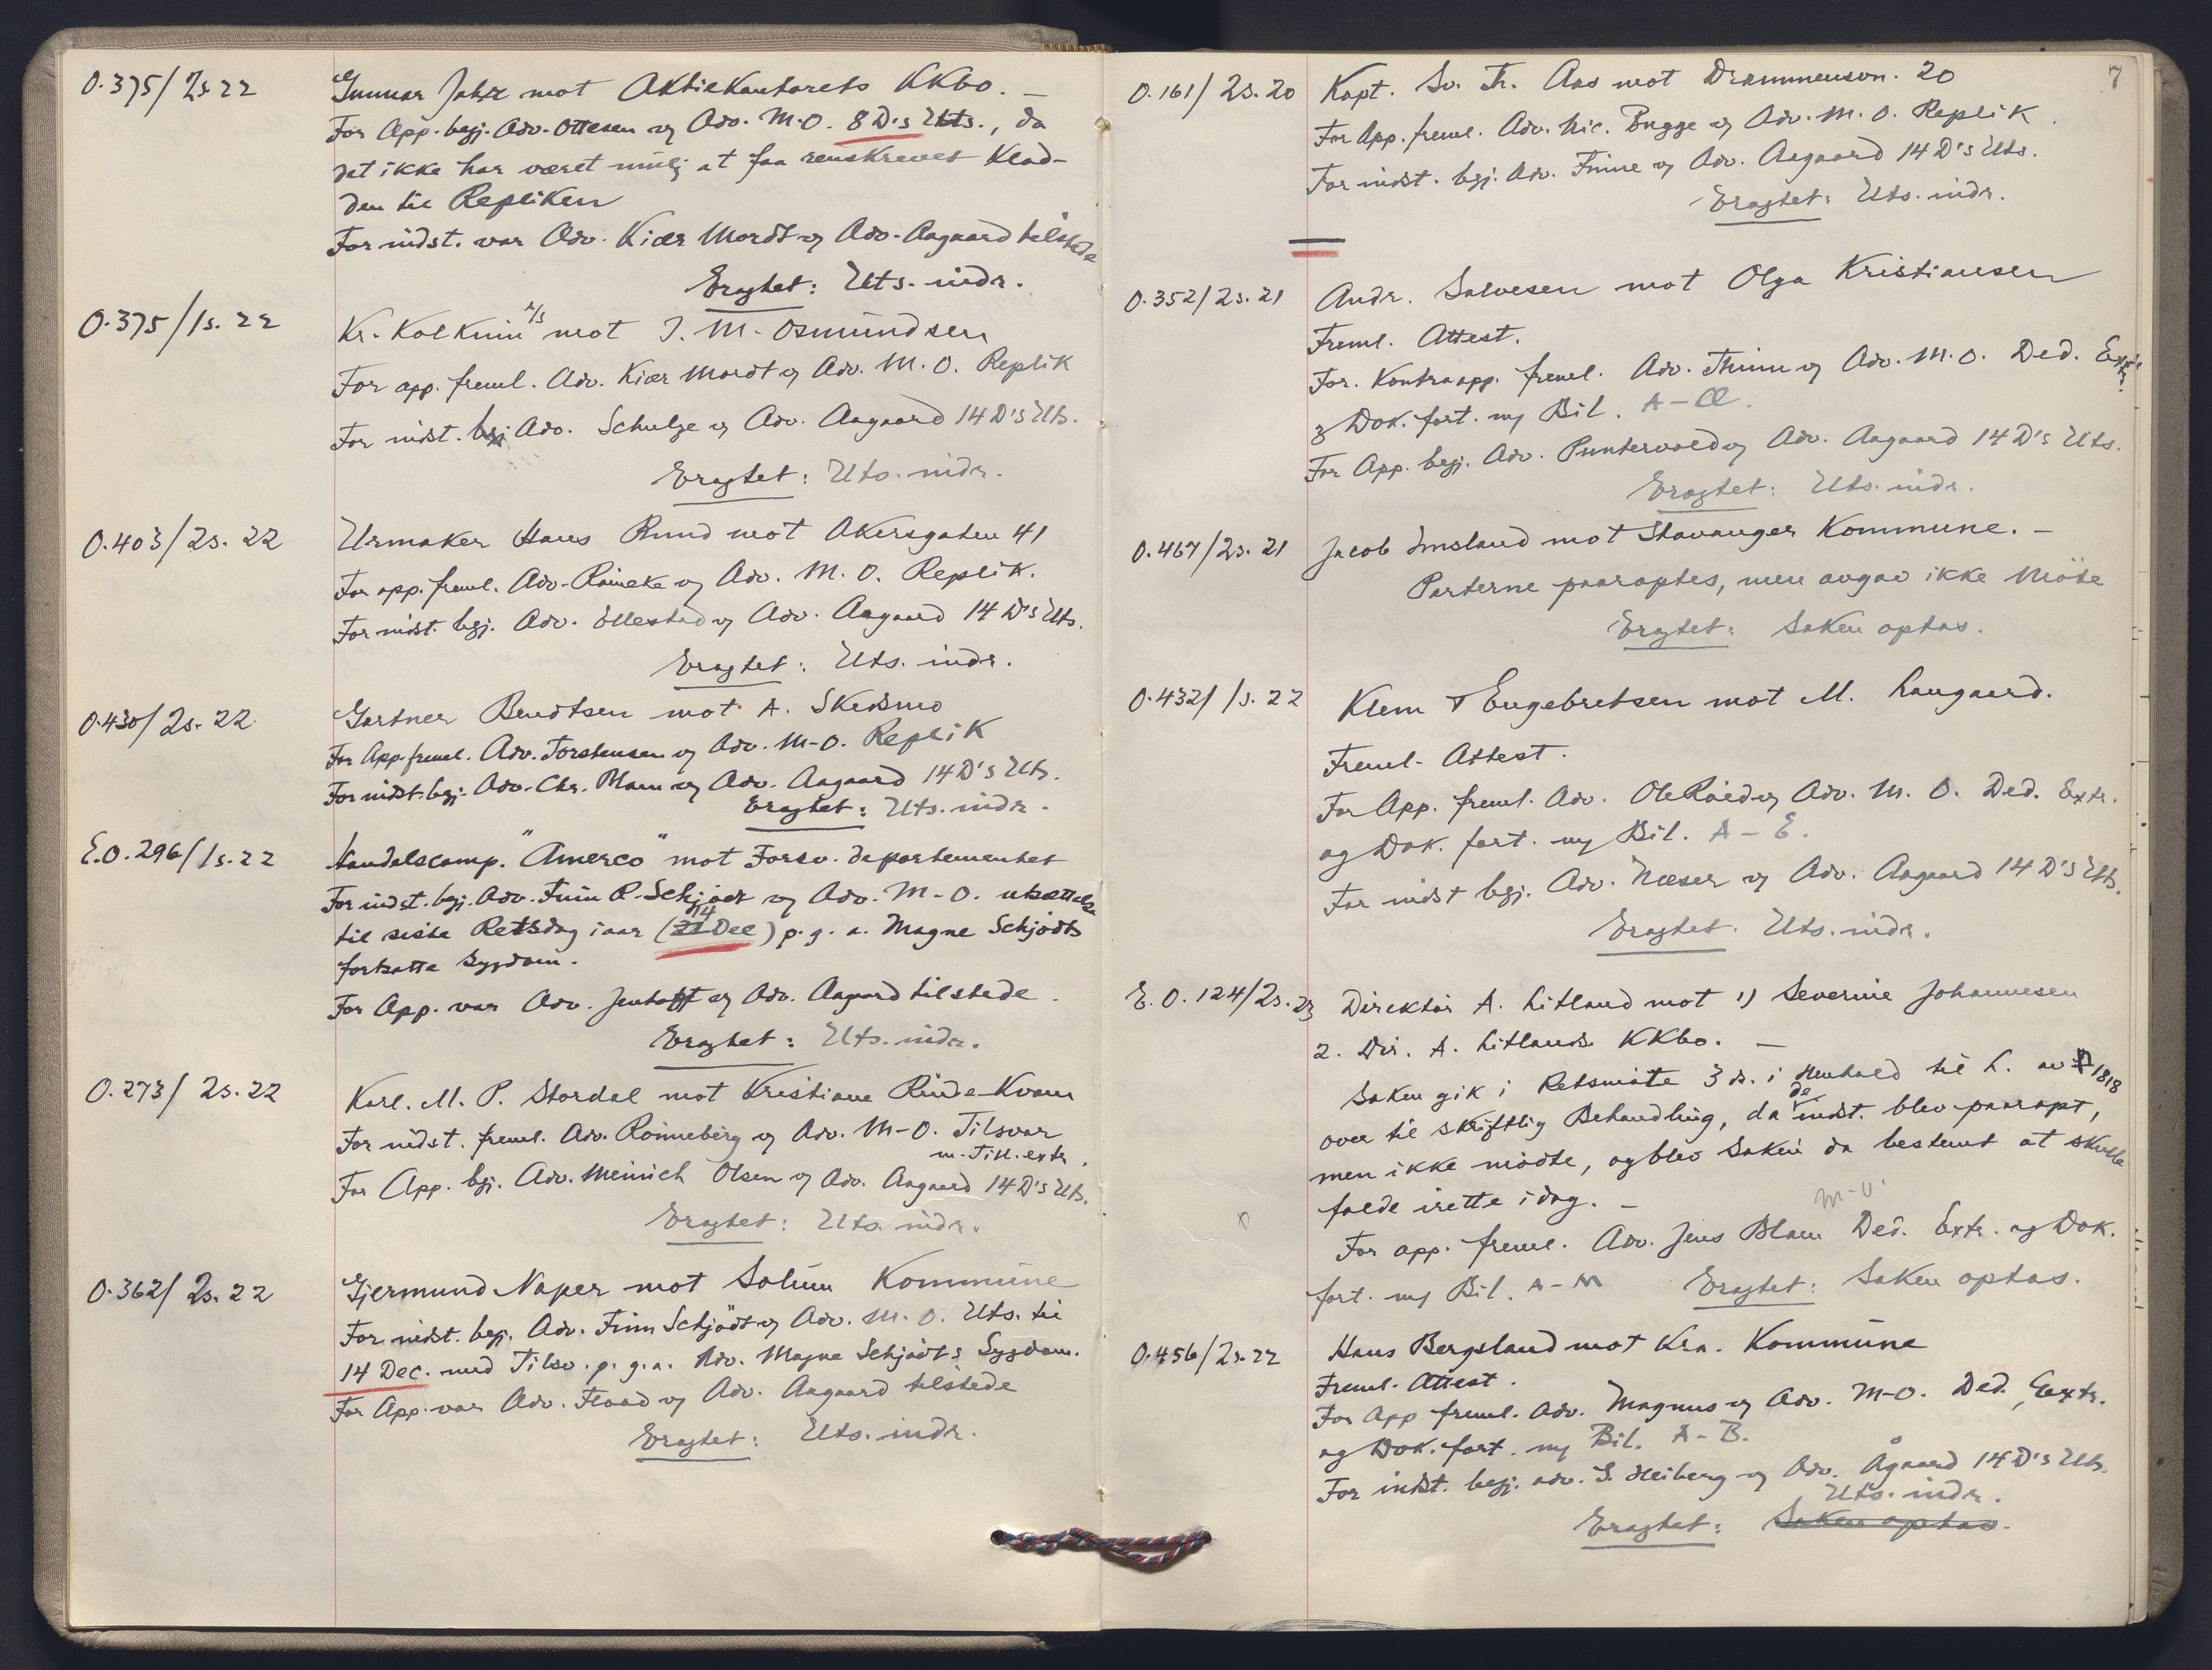 O.375/2s.22
Gunnar Jahr mot Aktiekontorets KKbo. —
For App. begj. Adv. Ottesen og Adv. M.O. 8 D's Uts., da
det ikke har været mulig at faa renskrevet Klad-
den til Repliken
For indst. var Adv. Kiær Mordt og Adv. Aagaard tilstede
Eragtet: Uts. indr.
O.375/1s.22
Kr. Kolkinn A/S mot J. M. Osmundsen
For app. freml. Adv. Kiær Mordt og Adv. M. O. Replik
For indst. begj. Adv. Schulze og Adv. Aagaard 14 D's Uts.
Eragtet: Uts. indr.
O.403/2s.22
Urmaker Hans Rund mot Akersgaten 41
For app. freml. Adv. Reineke og Adv. M. O. Replik.
For indst. begj. Adv. Ellestad og Adv. Aagaard 14 D's Uts.
Eragtet: Uts. indr.
O.430/2s.22
Gartner Bendtsen mot A. Skedsmo
For App. freml. Adv. Torstensen og Adv. M-O. Replik
For indst. begj. Adv. Chr. Blom og Adv. Aagaard 14 D's Uts.
Eragtet: Uts. indr.
E.O.296/1s.22
Handelscomp. "Amerco" mot Forsv. departementet
For indst. begj. Adv. Finn R. Schjødt og Adv. M-O. utsættelse
til siste Retsdag i aar (21 14 Dec) p. g. a. Magne Schjødts
fortsatte Sygdom.
For App. var Adv. Jentoft og Adv. Aagaard tilstede.
Eragtet: Uts. indr.
O.273/2s.22
Karl. M. P. Stordal mot Kristiane Rinde-Kvam
For indst. freml. Adv. Rønneberg og Adv. M-O. Tilsvar
m. Till. extr.
For App. bgj. Adv. Meinich Olsen og Adv. Aagaard 14 D's Uts.
Eragtet: Uts. indr.
O.362/2s.22
Gjermund Naper mot Solum Kommune
For indst. begj. Adv. Finn Schjödt og Adv. M. O. Uts. til
14 Dec. med Tilsv. p. g. a. Adv. Magne Schjødt's Sygdom.
For App. var Adv. Flood og Adv. Aagaard tilstede
Eragtet: Uts. indr.
7
O.161/2s.20
Kapt. Sv. Th. Aas mot Drammensvn. 20
For App. freml. Adv. Nic. Bugge og Adv. M. O. Replik.
For indst. bgj. Adv. Finne og Adv. Aagaard 14 D's Uts.
Eragtet: Uts. indr.
O.352/2s.21
Andr. Salvesen mot Olga Kristiansen
Freml. Attest.
For. Kontraapp. freml. Adv. Thinn og Adv. M. O. Ded. Extr.
og Dok. fort. m Bil. A – Æ.
For App. begj. Adv. Puntervold og Adv. Aagaard 14 D's Uts.
Eragtet: Uts. indr.
O.467/2s.21
Jacob Imsland mot Stavanger Kommune. —
Parterne paaroptes, men avgav ikke Möte
Eragtet: Saken optas.
O.432/1s.22
Klem & Engebretsen mot M. Langaard.
Freml. Attest.
For App. freml. Adv. Ole Røed og Adv. M. O. Ded. Extr.
og Dok. fort. m Bil. A – E.
For indst begj. Adv. Næser og Adv. Aagaard 14 D's Uts.
Eragtet. Uts. indr.
E.O.124/2s.23
Direktör A. Litland mot 1) Severine Johannesen
2. Dir. A. Litlands KKbo. —
Saken gik i Retsmøte 3 ds. i Henhold til L. av 1818
over til skriftlig Behandling, da de indst. blev paaropt,
men ikke mødte, og blev Saken da bestemt at skulle
falde irette i dag. —
M-O.
For app. freml. Adv. Jens Blom Ded. Extr. og Dok.
fort. m Bil. A – M Eragtet: Saken optas.
O.456/2s.22
Hans Bergsland mot Kra. Kommune
Freml. Attest.
For App freml. Adv. Magnus og Adv. M-O. Ded., Extr.
og Dok. fort. m Bil. A – B.
For indst. begj. adv. S. Heiberg og Adv. Ågaard 14 D's Uts.
Uts. indr.
Eragtet: Saken optas.